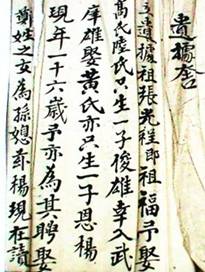 遺據書
立遺據祖張光程郎祖福予娶
高氏陸氏只生一子俊雄幸入武
庠雄娶黄氏亦只生一子恩楊
現年一十六歲予亦為其聘娶
黄姓之女為孫媳弃楊現在讀